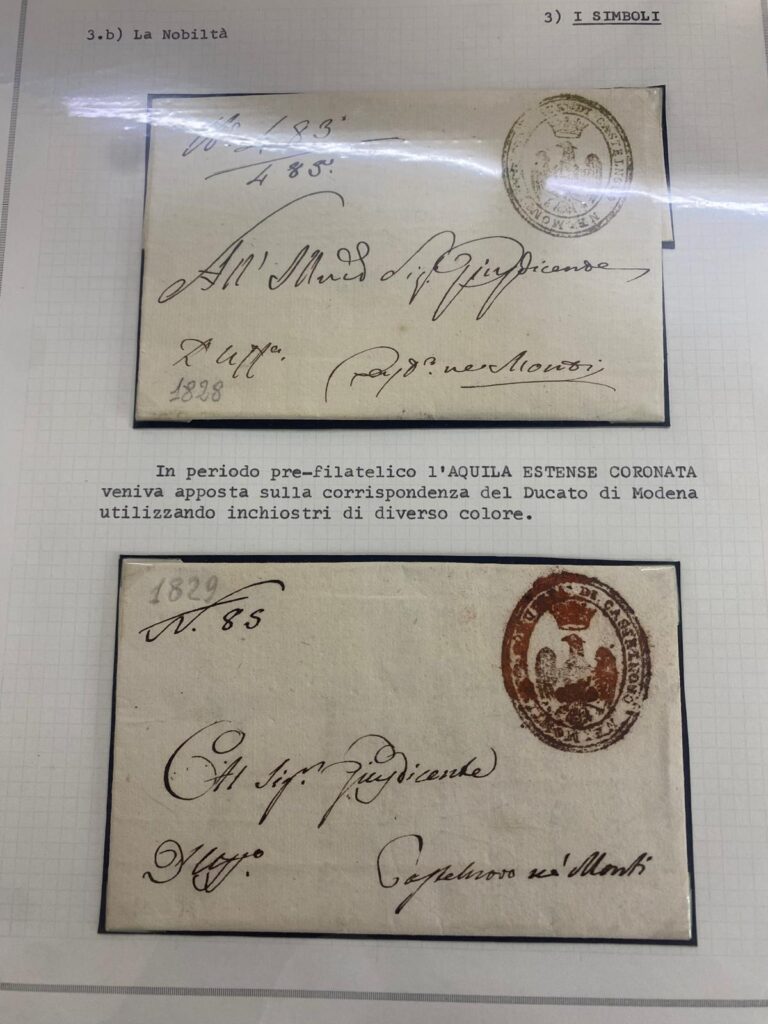 3) I SIMBOLI
3.b) La Nobiltà
N. 483
485.
CASTELNOVO NE' MONTI
All' Sig. Giusdicente
D'Uff.
ne' Monti
1828
In periodo pre-filatelico l'AQUILA ESTENSE CORONATA
veniva apposta sulla corrispondenza del Ducato di Modena
utilizzando inchiostri di diverso colore.
1829
N. 85
DI CASTELNOVO NE' MONTI
Al Sig.r Giusdicente
D'Uff.o
Castelnovo nè Monti